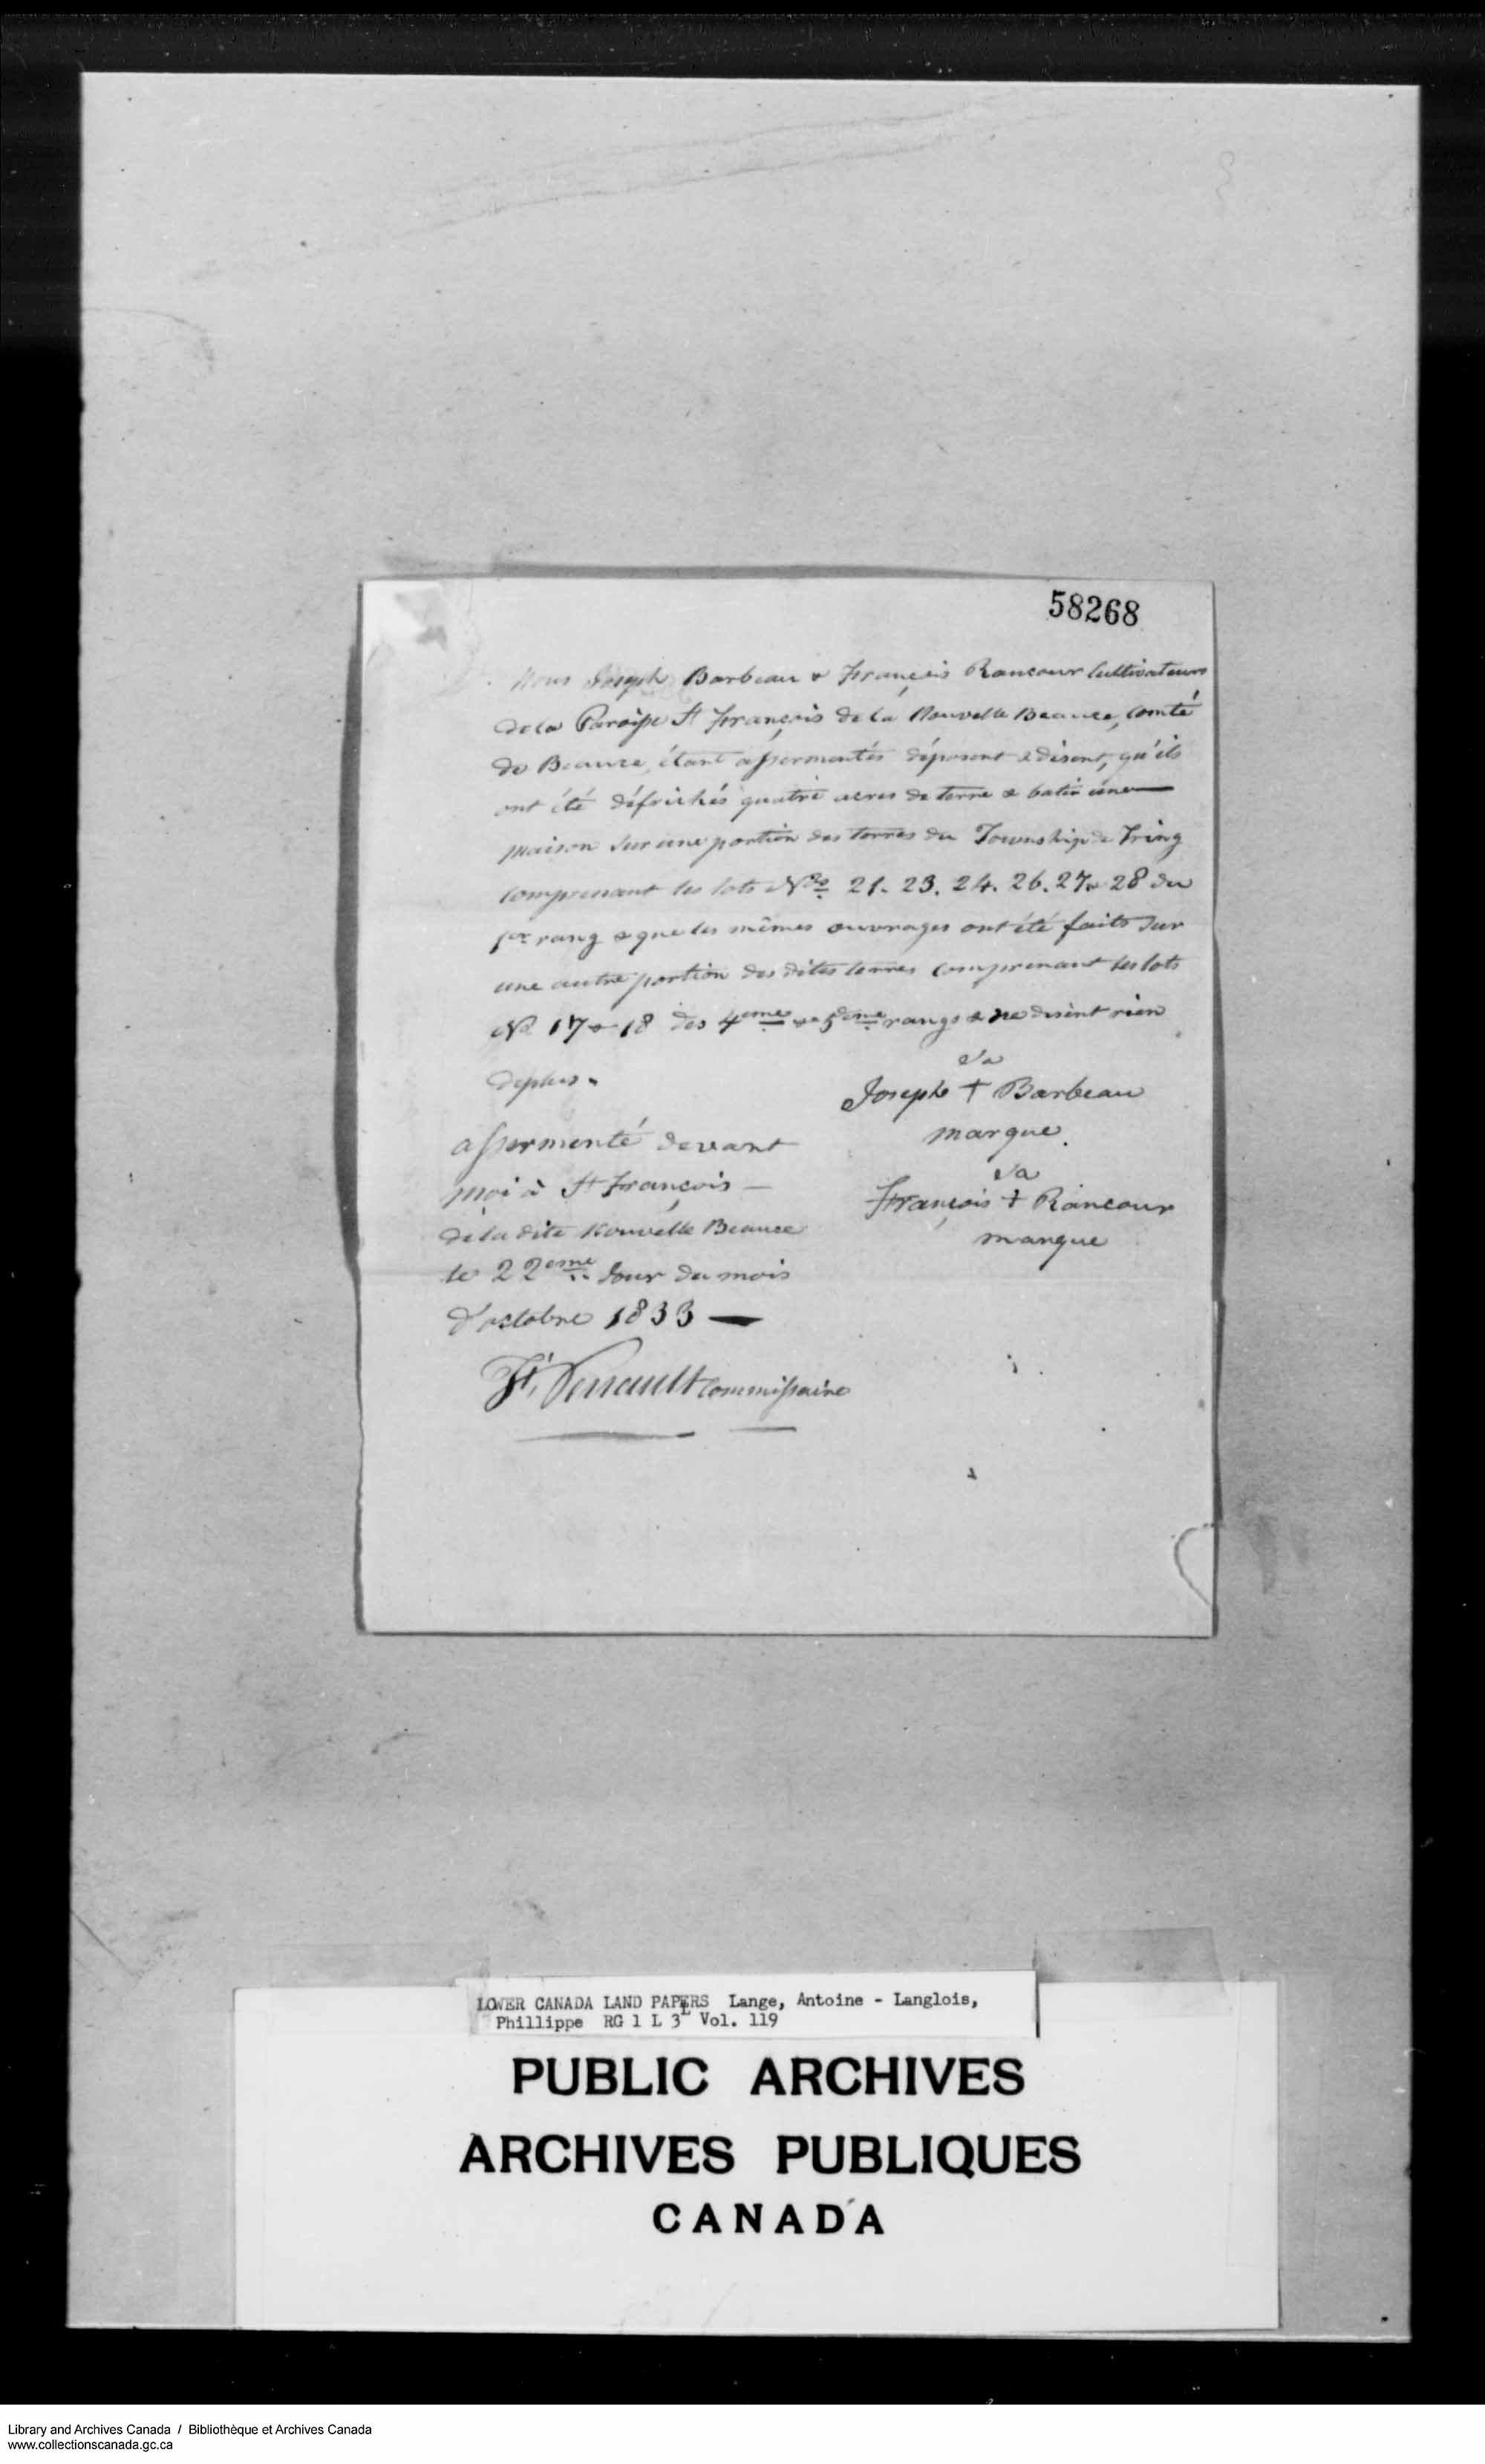 58268
Nous Joseph Barbeau & François Rancour Cultivateurs
de la Paroisse St François de la Nouvelle Beauce, Comté
de Beauce, étant assermentés déposent & disent, qu'ils
ont été défrichés quatre acres de terre & batir une
maison sur une portion des terres du Township de Tring
comprenant les lots Nos 21. 23. 24. 26. 27 & 28 du
1er rang & que les mêmes ouvrages ont été faits sur
une autre portion des dites terres comprenant les lots
No 17 & 18 des 4eme & 5eme rangs & ne disent rien
deplus.
sa
Joseph + Barbeau
marque.
sa
François + Rancour
marque
assermenté devant
moi à St François —
de la dite Nouvelle Beauce
le 22eme Jour du mois
d'octobre 1833 —
Ft. Verrault Commissaire
LOWER CANADA LAND PAPERS Lange, Antoine - Langlois,
Phillippe RG 1 L 3L Vol. 119
PUBLIC ARCHIVES
ARCHIVES PUBLIQUES
CANADA
Library and Archives Canada / Bibliothèque et Archives Canada
www.collectionscanada.gc.ca